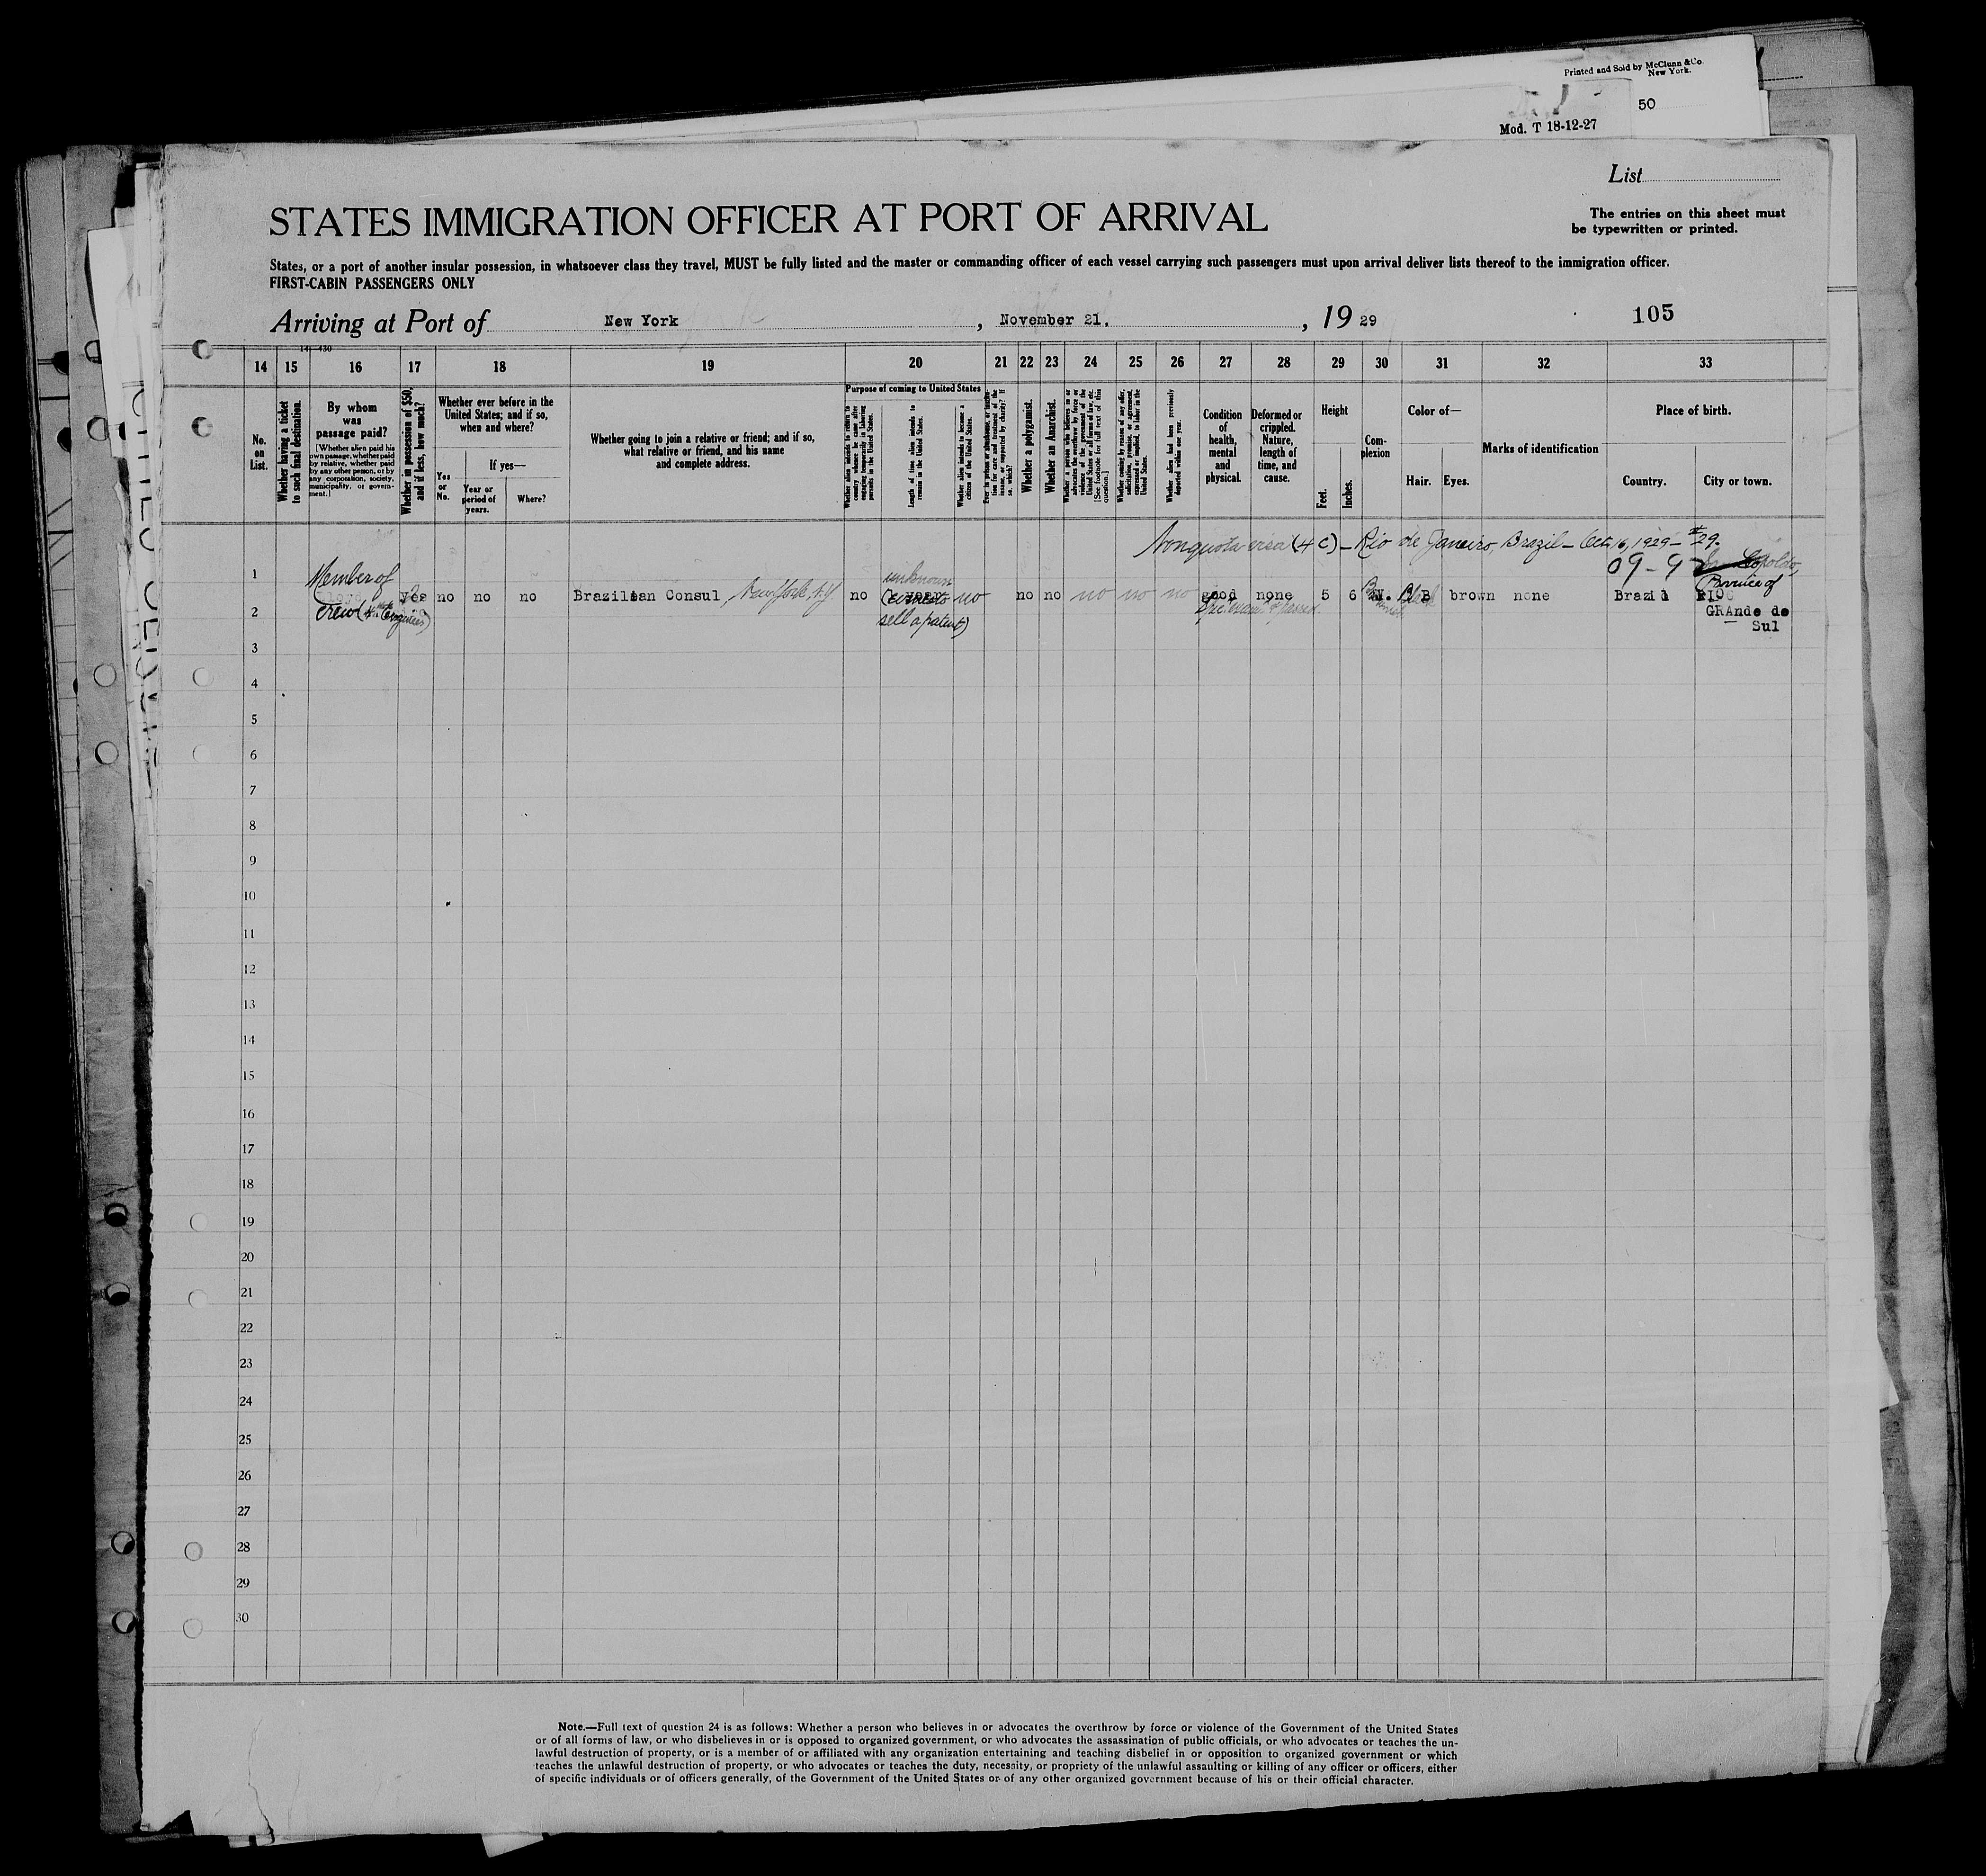 Printed and Sold by McClunn & Co.
New York.
50
Mod. T 18-12-27
List
STATES IMMIGRATION OFFICER AT PORT OF ARRIVAL
The entries on this sheet must
be typewritten or printed.
States, or a port of another insular possession, in whatsoever class they travel, MUST be fully listed and the master or commanding officer of each vessel carrying such passengers must upon arrival deliver lists thereof to the immigration officer.
FIRST-CABIN PASSENGERS ONLY
Arriving at Port of New York, November 21, 19 29
105
14 15 16 17 18 19 20 21 22 23 24 25 26 27 28 29 30 31 32 33
No. on List.
Whether having a ticket to such final destination.
By whom was passage paid?
[Whether alien paid his own passage, whether paid by relative, whether paid by any other person, or by any corporation, society, municipality, or government.]
Whether in possession of $50, and if less, how much?
Whether ever before in the United States; and if so, when and where?
Yes or No.
If yes—
Year or period of years.
Where?
Whether going to join a relative or friend; and if so, what relative or friend, and his name and complete address.
Purpose of coming to United States
Whether alien intends to return to country whence he came after engaging temporarily in laboring pursuits in the United States.
Length of time alien intends to remain in the United States.
Whether alien intends to become a citizen of the United States.
Ever in prison or almshouse, or institution for care and treatment of the insane, or supported by charity? If so, which?
Whether a polygamist.
Whether an Anarchist.
Whether a person who believes in or advocates the overthrow by force or violence of the government of the United States or all forms of law, etc. [See footnote for full text of this question.]
Whether coming by reason of any offer, solicitation, promise, or agreement, expressed or implied, to labor in the United States.
Whether alien had been previously deported within one year.
Condition of health, mental and physical.
Deformed or crippled. Nature, length of time, and cause.
Height
Feet.
Inches.
Complexion
Color of—
Hair.
Eyes.
Marks of identification
Place of birth.
Country.
City or town.
Nonquota visa (4 c) – Rio de Janeiro, Brazil – Oct. 16, 1929 – # 29.
09-9
1
Member of
unknown
Province of
yes no no no Brazilian Consul, New York, N.Y. no no no no no no no good none 5 6 brown none Brazil RIO
2
crew
sell a patent)
GRAnde do
Sul
3
4
5
6
7
8
9
10
11
12
13
14
15
16
17
18
19
20
21
22
23
24
25
26
27
28
29
30
Note.—Full text of question 24 is as follows: Whether a person who believes in or advocates the overthrow by force or violence of the Government of the United States
or of all forms of law, or who disbelieves in or is opposed to organized government, or who advocates the assassination of public officials, or who advocates or teaches the un-
lawful destruction of property, or is a member of or affiliated with any organization entertaining and teaching disbelief in or opposition to organized government or which
teaches the unlawful destruction of property, or who advocates or teaches the duty, necessity, or propriety of the unlawful assaulting or killing of any officer or officers, either
of specific individuals or of officers generally, of the Government of the United States or of any other organized government because of his or their official character.